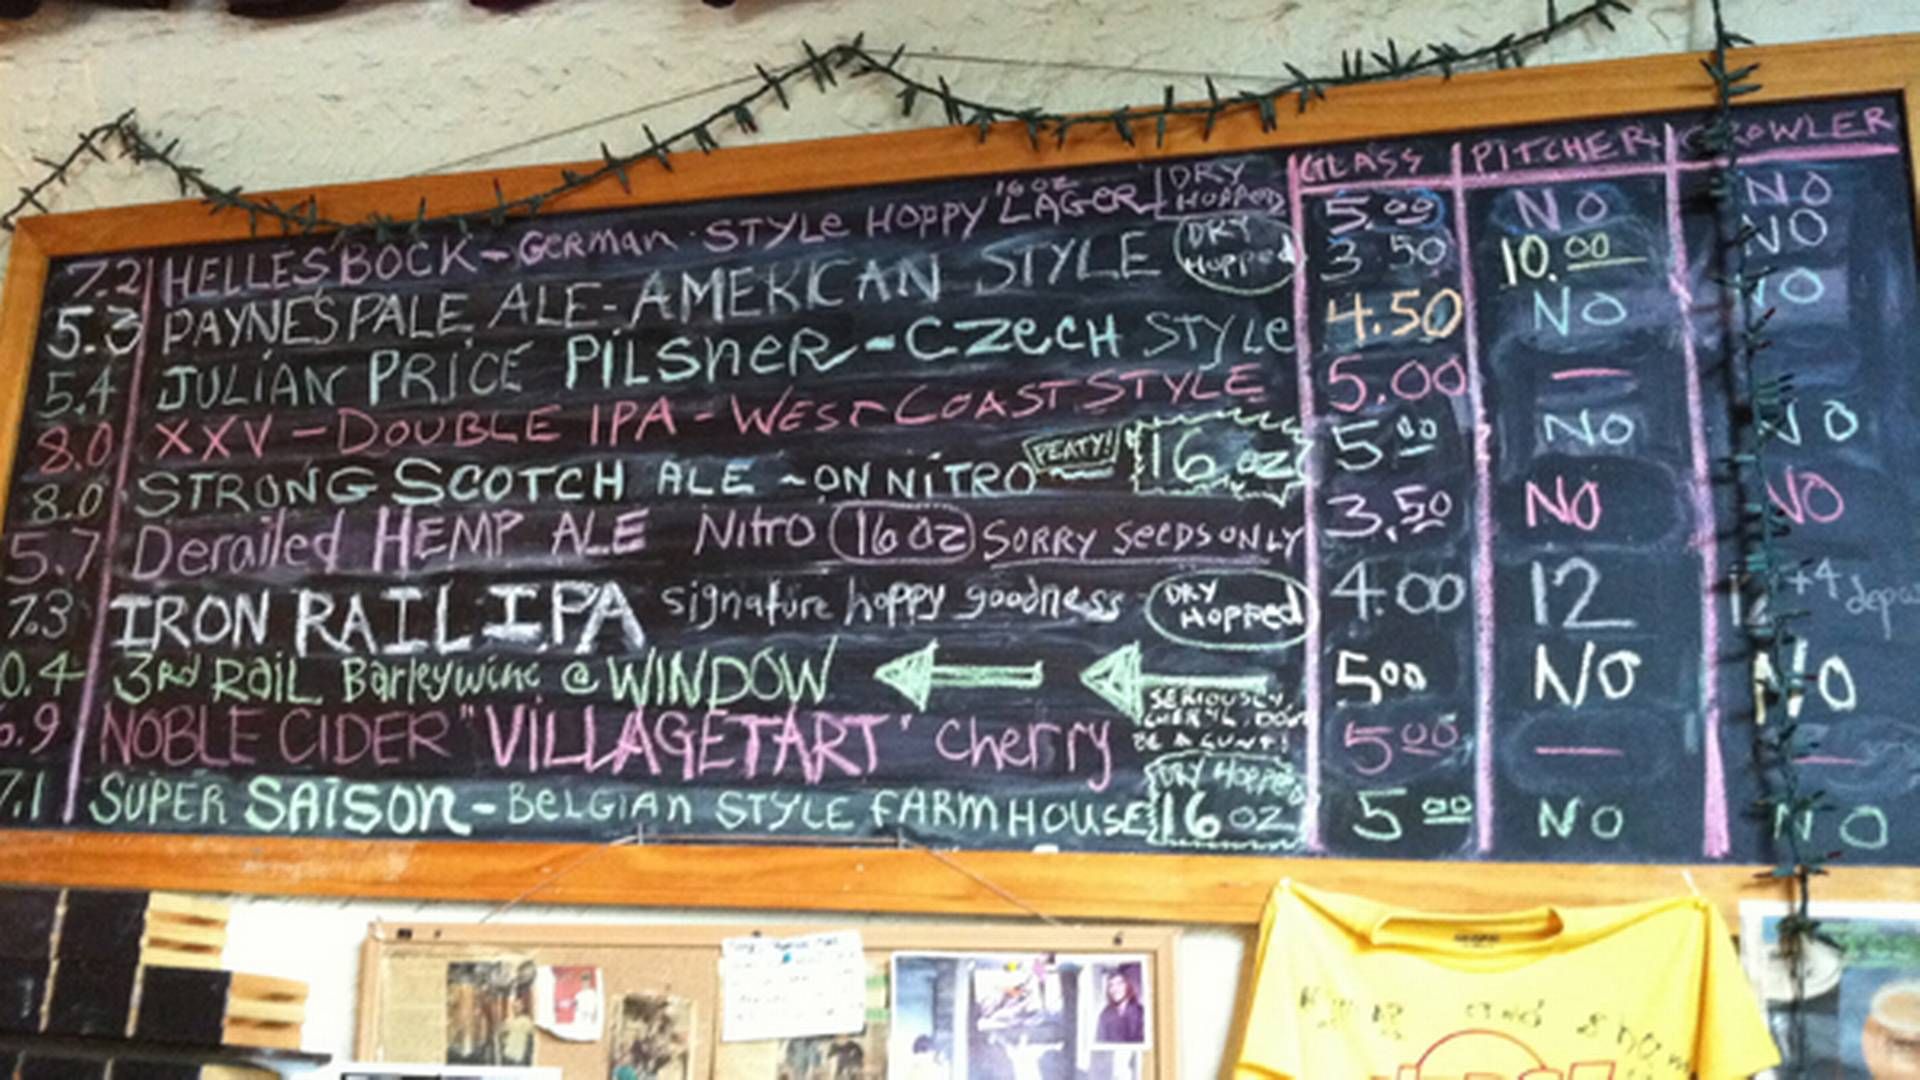 GLASS PITCHER GROWLER
7.2 HELLES BOCK - German STYLE HOPPY 16 OZ LAGER DRY HOPPED 5.00 NO NO
5.3 PAYNES PALE ALE - AMERICAN STYLE DRY HOPPED 3.50 10.00 NO
5.4 JULIAN PRICE PILSNER - CZECH STYLE 4.50 NO NO
8.0 XXV - DOUBLE IPA - WEST COAST STYLE 5.00 —
8.0 STRONG SCOTCH ALE ~ ON NITRO PEATY! 16 oz 5.00 NO NO
5.7 Derailed HEMP ALE Nitro 16 oz SORRY SEEDS ONLY 3.50 NO NO
7.3 IRON RAIL IPA signature hoppy goodness DRY HOPPED 4.00 12 +4
0.4 3rd RAIL Barleywine @ WINDOW 5.00 N/O N/O
SERIOUSLY,
BE A
6.9 NOBLE CIDER "VILLAGE TART" cherry 5.00 — —
7.1 SUPER SAISON - BELGIAN STYLE FARMHOUSE DRY HOPPED 16 OZ 5.00 NO NO